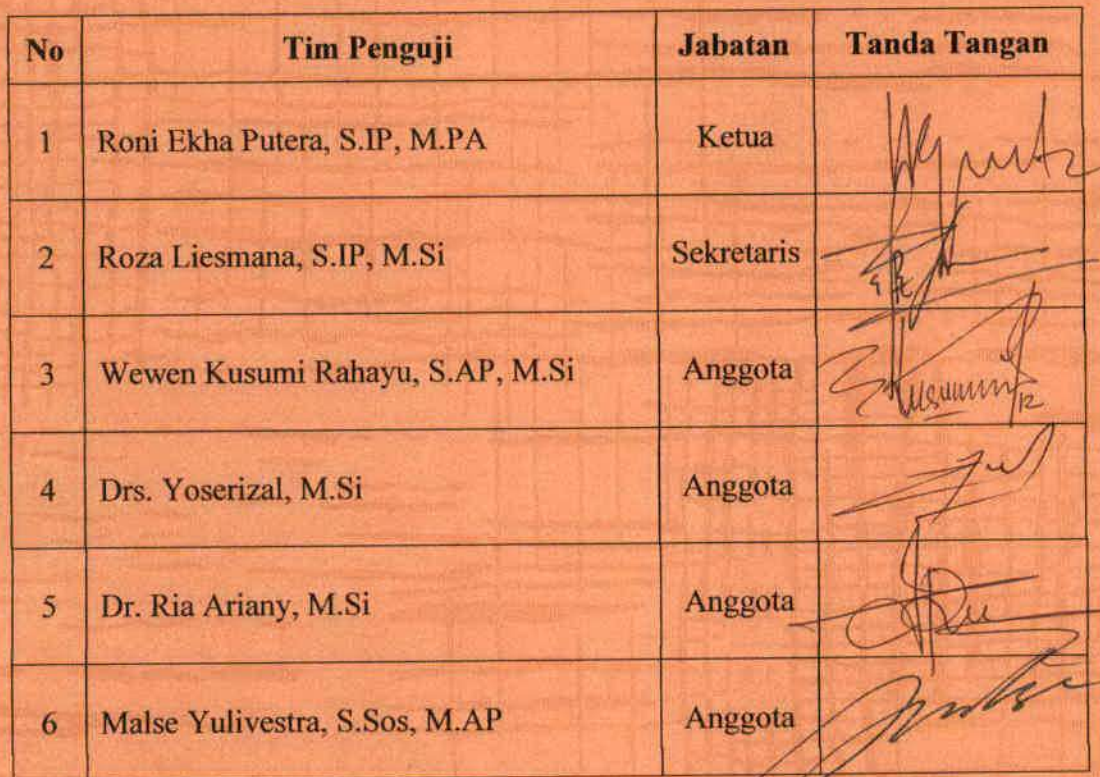 No Tim Penguji Jabatan Tanda Tangan
1 Roni Ekha Putera, S.IP, M.PA Ketua
2 Roza Liesmana, S.IP, M.Si Sekretaris
3 Wewen Kusumi Rahayu, S.AP, M.Si Anggota
4 Drs. Yoserizal, M.Si Anggota
5 Dr. Ria Ariany, M.Si Anggota
6 Malse Yulivestra, S.Sos, M.AP Anggota